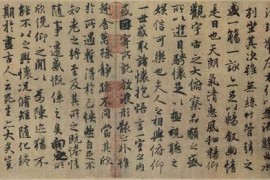 列坐其次雖無絲竹管弦之
盛一觴一詠亦足以暢敘幽情
是日也天朗氣清惠風和暢仰
觀宇宙之大俯察品類之盛
所以遊目騁懷足以極視聽之
娛信可樂也夫人之相與俯仰
一世或取諸懷抱悟言一室之內
或因寄所託放浪形骸之外雖
趣舍萬殊靜躁不同當其欣
於所遇暫得於己怏然自足不
知老之將至及其所之既惓情
隨事遷感慨係之矣向之所
欣俛仰之閒以為陳迹猶不
能不以之興懷況脩短隨化終
期於盡古人云死生亦大矣豈